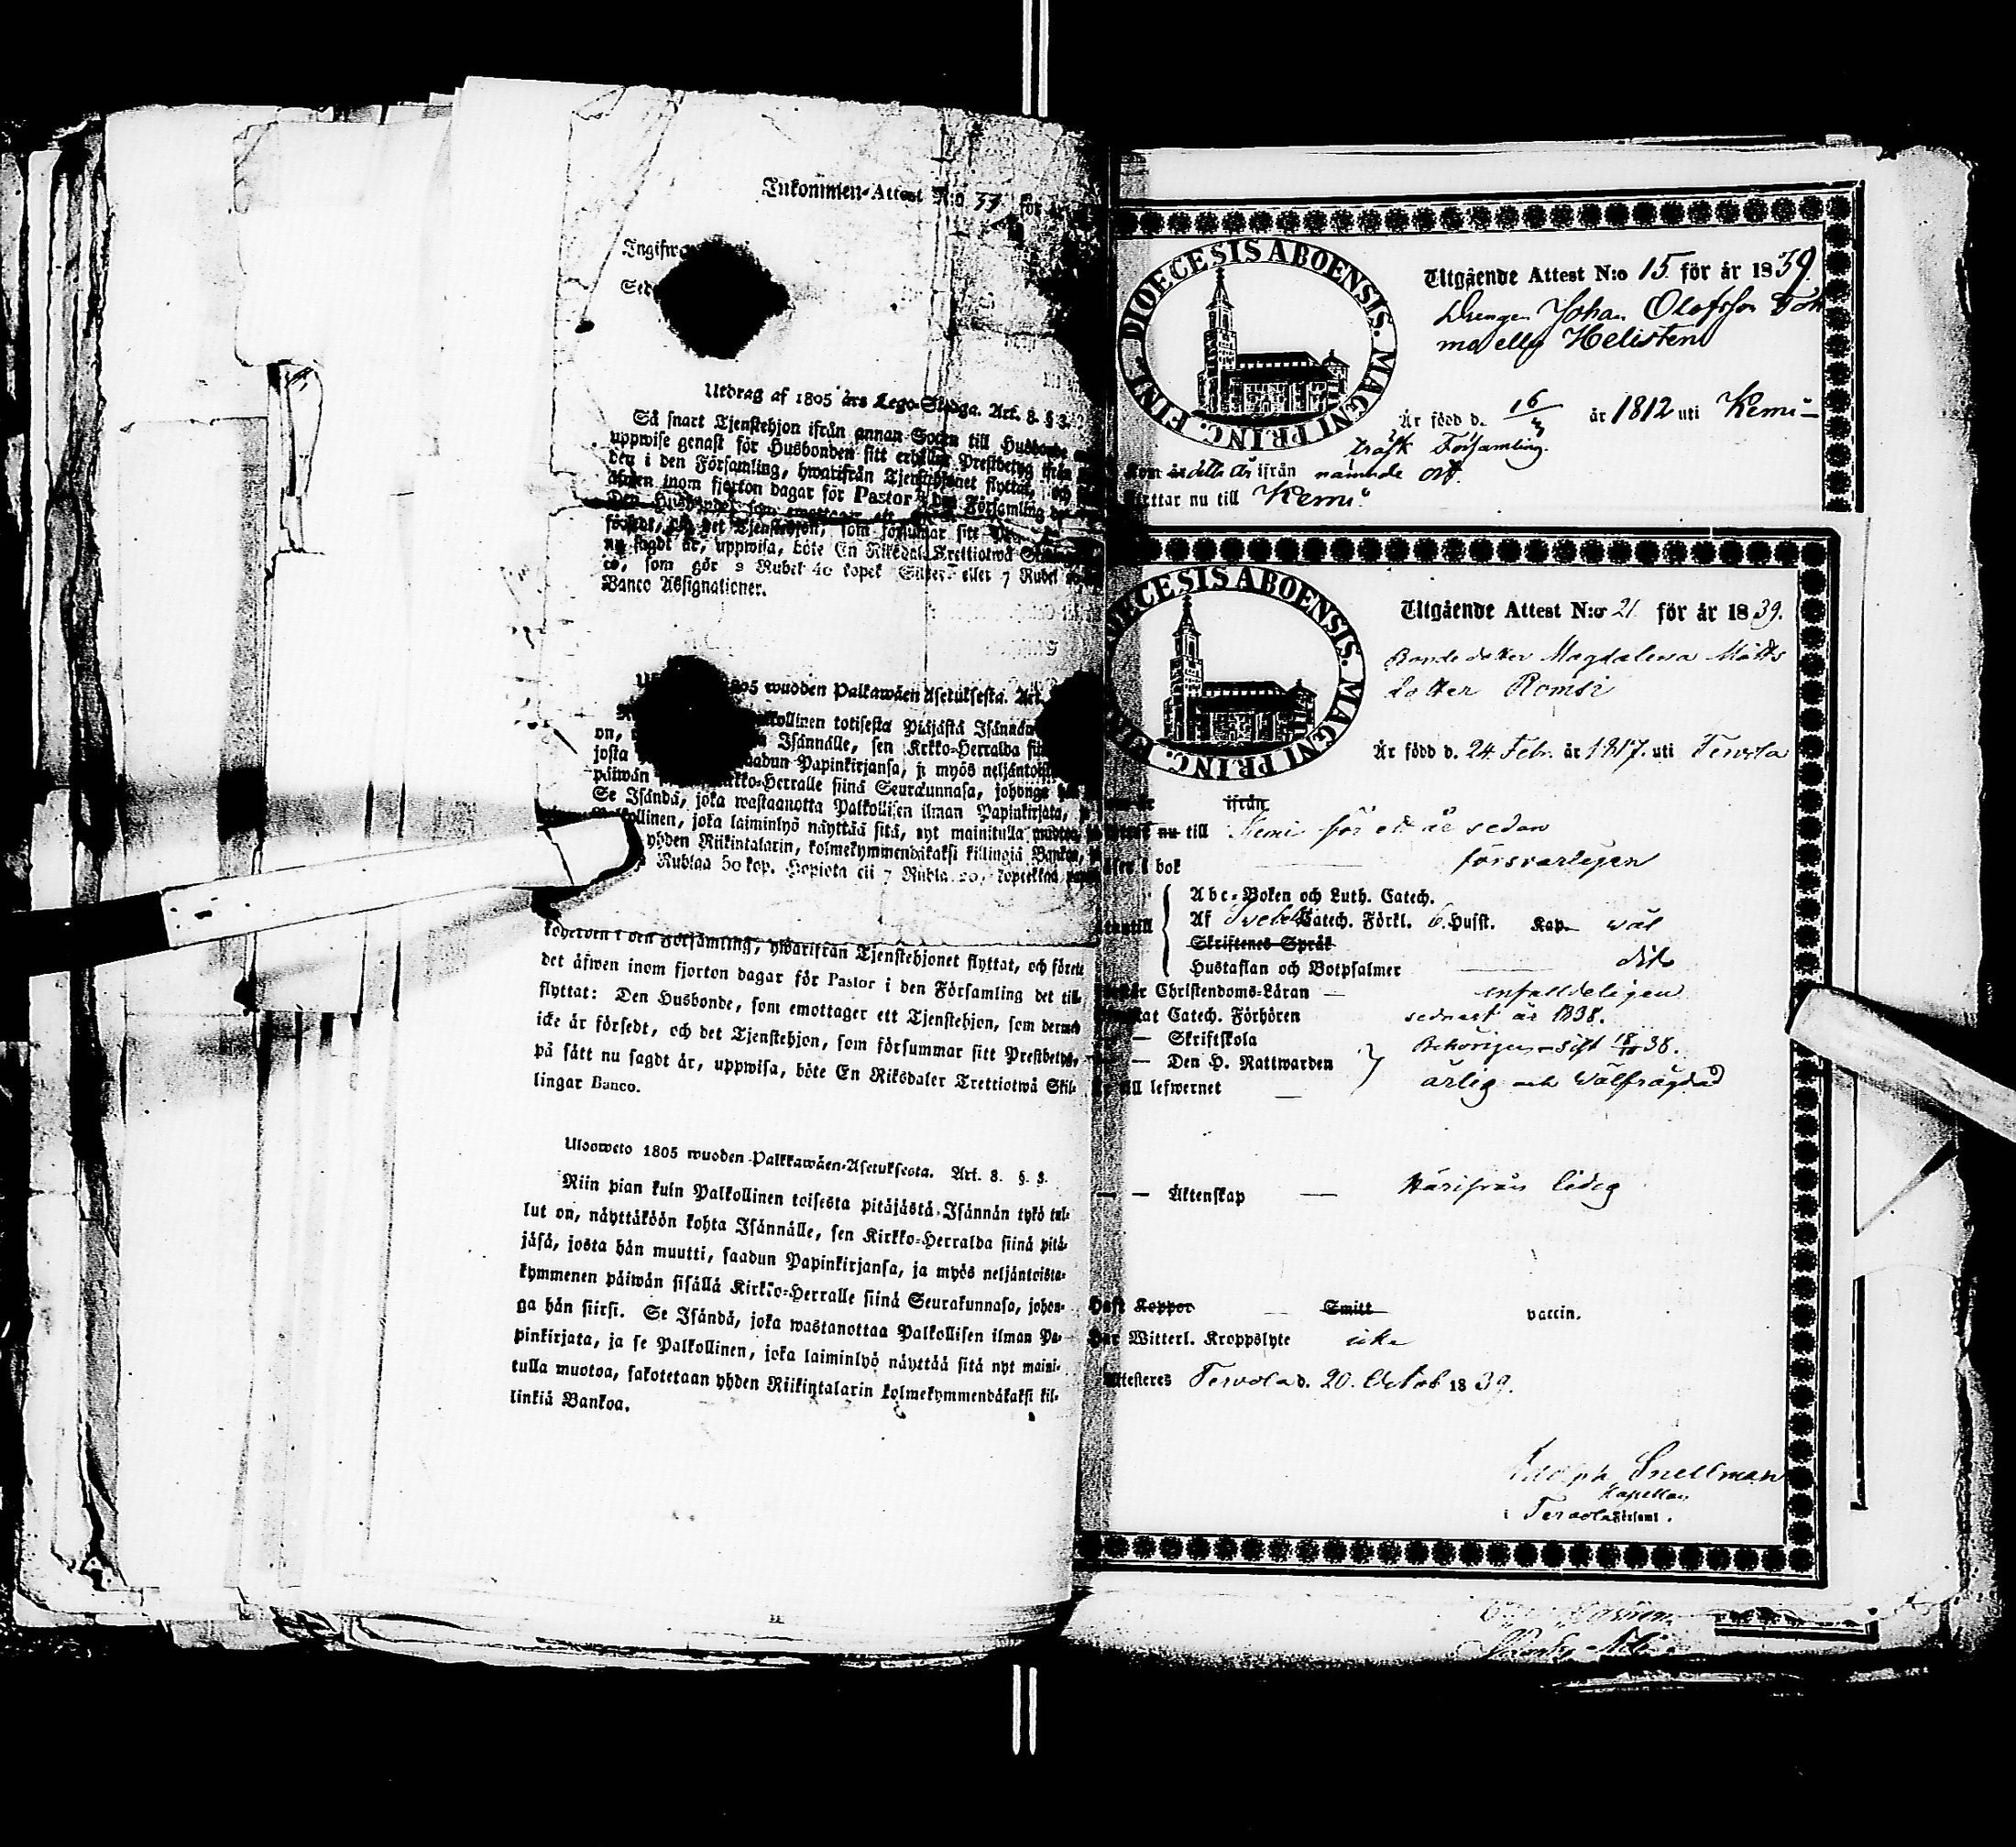 Inkommen-Attest N:o 37 för
Utdrag af 1805 års Lego-Stadga. Art. 8. § 3.
Så snart Tjenstehjon ifrån annan Socken till Husbonde
uppwise genast för Husbonden sitt erhållna Prestbetyg ifrån
den i den Församling, hwarifrån Tjenstehjonet flyttat, och
äfwen inom fjorton dagar för Pastor i den Församling
Den Husbonde, som emottager ett
försedt, och det Tjenstehjon, som försummar sitt
nu sagdt är, uppwisa, böte En Riksdal. Trettiotwå
co, som gör 2 Rubel 40 kopek Silfer eller 7 Rubel
Banco Assignationer.
1805 wuoden Palkawäen Asetuksesta. Art.
Palkollinen toisesta Pitäjästä Isännän
on, Isännälle, sen Krkko-Herralda
josta saadun Papinkirjansa, ja myös neljäntoista
päiwän Kirkko-Herralle siinä Seurakunnasa, johonga
Se Isändä, joka wastaanotta Palkollisen ilman Papinkirjata,
Palkollinen, joka laiminlyö näyttää sitä, nyt mainitulla muotoa,
yhden Riikintalarin, kolmekymmendäkaksi killingiä Bankoa,
Rublaa 50 kop. Hopiota eli 7 Rubla 20, kopekkaa
koherden i den Församling, hwarifrån Tjenstehjonet flyttat, och förete
det äfwen inom fjorton dagar för Pastor i den Församling det till-
flyttat: Den Husbonde, som emottager ett Tjenstehjon, som dermed
icke är försedt, och det Tjenstehjon, som försummar sitt Prestbetyg,
på sätt nu sagdt är, uppwisa, böte En Riksdaler Trettiotwå Skil-
lingar Banco.
Ulosweto 1805 wuoden Palkkawäen-Asetuksesta. Art. 8. §. 3.
Niin pian kuin Palkollinen toisesta pitäjästä Isännän tykö tul-
lut on, näyttäköön kohta Isännälle, sen Kirkko-Herralda siinä pitä-
jäsä, josta hän muutti, saadun Papinkirjansa, ja myös neljäntoista-
kymmenen päiwän sisällä Kirkko-Herralle siinä Seurakunnasa, johon-
ga hän siirsi. Se Isändä, joka wastanottaa Palkollisen ilman Pa-
pinkirjata, ja se Palkollinen, joka laiminlyö näyttää sitä nyt maini-
tulla muotoa, sakotetaan yhden Riikintalarin kolmekymmendäkaksi kil-
linkiä Bankoa.
DIOECESIS ABOENSIS. MAGNI PRINC. FINL.
Utgående Attest N:o 15 för år 1839.
Drengen Johan Olofsson
Helisten
Är född d. 16/3 år 1812 uti Kemi-
träsk Församling.
Kom detta år ifrån nämnde ort.
Flyttar nu till Kemi
DIOECESIS ABOENSIS. MAGNI PRINC.
Utgående Attest N:o 21 för år 1839.
Bondedotter Magdalena Matts
dotter Romsi
Är född d. 24. Febr. år 1817. uti Tervola
ifrån
nu till Kemi för ett år sedan
Läser i bok — försvarligen
Abc-Boken och Luth. Catech.
Utantill Af Svebelii Catech. Förkl. 6. Husst. Kap. väl
Skriftenes Språk
Hustaflan och Botpsalmer — dito
Christendoms-Läran — enfaldeligen
Catech. Förhören sednast år 1838.
— Skriftskola
— Den H. Nattwarden Behörigen sist 18/10 38.
till lefwernet — ärlig och välfrägdad
— — Äktenskap — Härifrån ledig
Haft Koppor — Smitt vaccin.
Har Witterl. Kroppslyte icke
Attesteres Tervola d. 20. Octob 1839.
Adolph Snellman
Kapellan
i Tervola Församl.